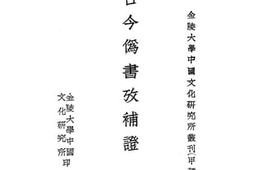 金陵大學中國文化研究所叢刊甲
古今僞書攷補證
金陵大學中國
文化研究所印